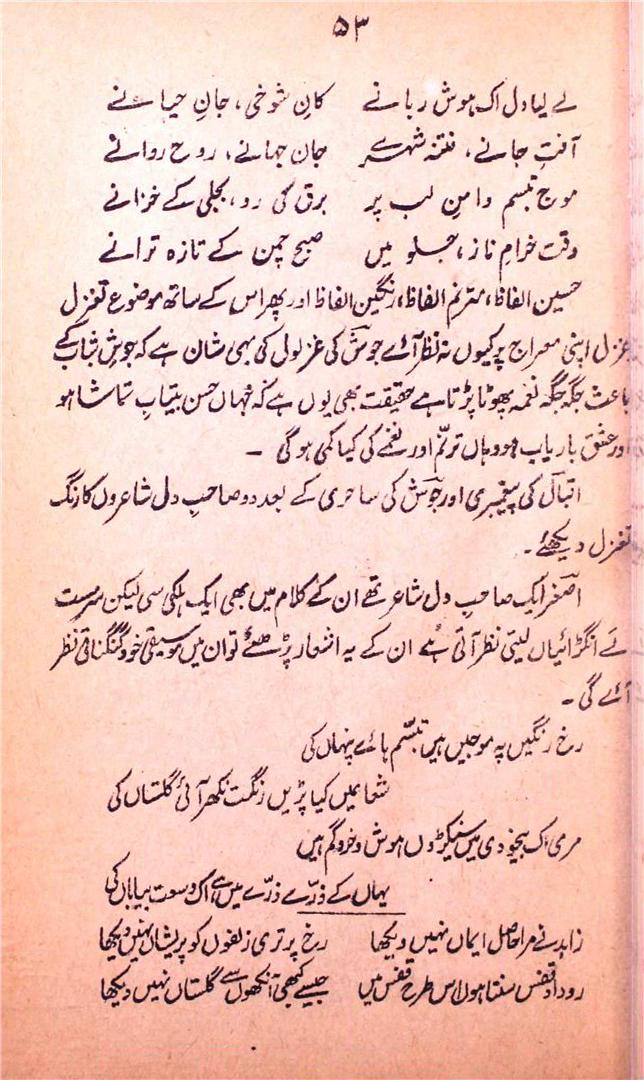 ۵۳
لے لیا دل اک ہوش ربا نے کانِ شوخی، جانِ حیا نے
آفتِ جانے، فتنہ شہرے جان جہانے، روح روانے
موج تبسم دامنِ لب پر برق کی رو، بجلی کے خزانے
وقت خرامِ ناز، جلو میں صبح چمن کے تازہ ترانے
حسین الفاظ، مترنم الفاظ، رنگین الفاظ اور پھر اس کے ساتھ موضوع تغزل
غزل اپنی معراج پر کیوں نہ نظر آئے جوش کی غزلوں کی یہی شان ہے کہ جوشِ شباب کے
باعث جگہ جگہ نغمہ پھوٹا پڑتا ہے حقیقت بھی یوں ہے کہ جہاں حسن بیتابِ تماشا ہو
اور عشق باریاب ہو وہاں ترنّم اور نغمے کی کیا کمی ہو گی ۔
اقبال کی پیغمبری اور جوش کی ساحری کے بعد دو صاحبِ دل شاعروں کا رنگ
تغزل دیکھئے ۔
اصغر ایک صاحبِ دل شاعر تھے ان کے کلام میں بھی ایک ہلکی سی لیکن سرمست
لَے انگڑائیاں لیتی نظر آتی ہے ان کے یہ اشعار پڑھیئے تو ان میں موسیقی خود گنگناتی نظر
آئے گی ۔
رخ رنگیں پہ موجیں ہیں تبسّم ہائے پنہاں کی
شعاعیں کیا پڑیں رنگت نکھر آئی گلستاں کی
مری اک بیخودی میں سیکڑوں ہوش و خرد گم ہیں
یہاں کے ذرّے ذرّے میں ہے اک وسعت بیاباں کی
زاہد نے مرا حاصل ایماں نہیں دیکھا رخ پر تری زلفوں کو پریشاں نہیں دیکھا
روداد قفس سنتا ہوں اس طرح قفس میں جیسے کبھی آنکھوں سے گلستاں نہیں دیکھا